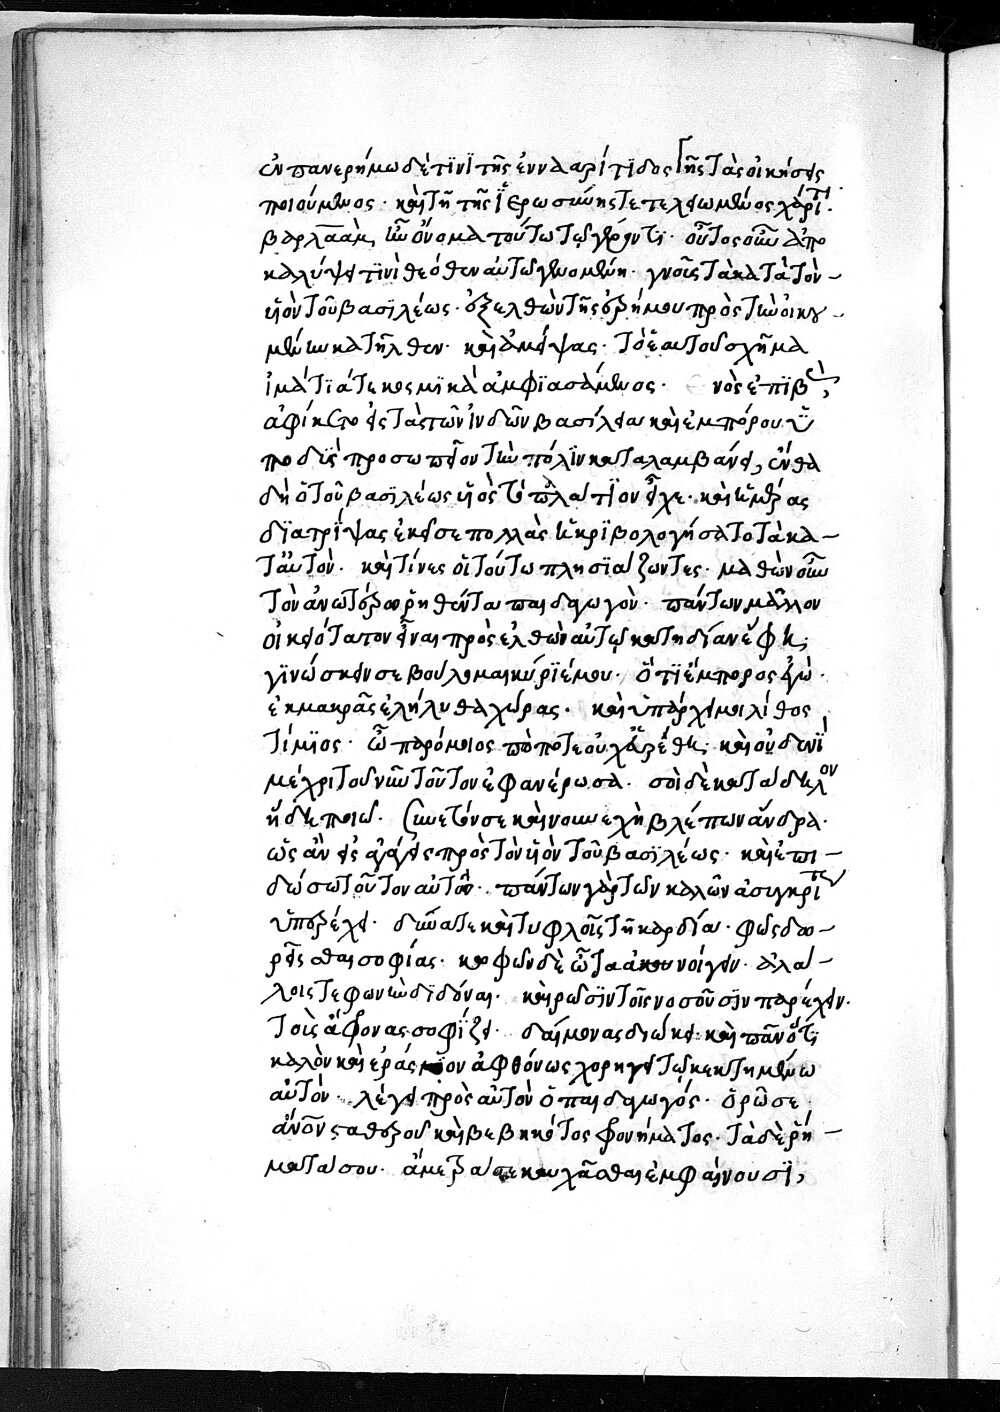 ἐν πανερήμω δὲ τϊνῒ τῆς ἐννααρίτϊδος γῆς τὰς οἰκήσεις
ποιούμενος · καὶ τῆ τῆς ἱερωσύνης τετελειωμένος χάριτι ·
βαρλαὰμ ἦν ὄνομα τούτω τῶ γέροντϊ · οὗτος οὖν ἀπο
καλύψει τϊνὶ θεόθεν αὐτῶ γενομένη · γνοὺς τὰ κατὰ τὸν –
υἱὸν τοῦ βασϊλέως · ἐξελθὼν τῆς ἐρήμου πρὸς τὴν οἰκου –
μένην κατῆλθεν · καὶ ἀμείψας · τὸ ἑαυτοῦ σχῆμα
ἱμάτϊά τε κοσμϊκὰ ἀμφϊασάμενος · νὸς ἐπϊβὰς
ἀφίκετο εἰς τὰ τῶν ἰνδῶν βασίλεια καὶ ἐμπόρου ὑ
ποδὺς προσωπεῖον τὴν πόλϊν καταλαμβάνει, ἔνθα
δὴ ὁ τοῦ βασϊλέως υἱὸς τὸ παλάτϊον εἶχε · καὶ ἡμέρας
δϊατρίψας ἐκεῖσε πολλὰς ἠκρϊβολογήσατο τὰ κα –
τ᾽ αὐτὸν · καὶ τίνες οἱ τούτω πλησϊάζοντες · μαθὼν οὖν
τὸν ἀνωτέρω ῥηθέντα παιδαγωγὸν · πάντων μᾶλλον
οἰκειότατον εἶναι προσελθὼν αὐτῶ κατηδίαν ἔφη ;
γϊνώσκειν σε βούλομαι κύρϊέ μου · ὅτϊ ἔμπορος ἐγὼ ·
ἐκ μακρᾶς ἐλήλυθα χώρας · καὶ ὑπάρχει μοι λίθος
τίμϊος · ὧ παρόμοιος πώποτε οὐχ εὑρέθη ; καὶ οὐδενῒ
μέχρι τοῦ νῦν τοῦτον ἐφανέρωσα · σοὶ δὲ κατάδηλον
ἤδη ποιῶ · συνετόν σε καὶ νουνεχῆ βλέπων ἄνδρα ·
ὡς ἂν εἰσαγάγεις πρὸς τὸν υἱὸν τοῦ βασϊλέως · καὶ ἐπι –
δώσω τοῦτον αὐτῶ · πάντων γὰρ τῶν καλῶν ἀσυγκρίτως
ὑπερέχει · δύναται καὶ τυφλοῖς τῆ καρδία · φῶς δω –
ρεῖσθαι σοφίας · κωφῶν δὲ ὦτα ἀκουνοίγειν · ἀλά –
λοις τε φωνὴν δϊδόναι · καὶ ῥῶσϊν τοῖς νοσοῦσϊν παρέχειν ·
τοὺς ἄφρονας σοφίζει · δαίμονας διώκει · καὶ πᾶν ὅτϊ
καλὸν καὶ ἐράσμϊον ἀφθόνως χορηγεῖ τῶ κεκτημένω
αὐτὸν · λέγει πρὸς αὐτὸν ὁ παιδαγωγός · ὁρῶ σε
ἄνον σταθεροῦ καὶ βεβηκότος φρονήματος · τὰ δὲ ῥή –
ματά σου · ἄμετρα σε καυχᾶσθαι ἐμφαίνουσϊ,